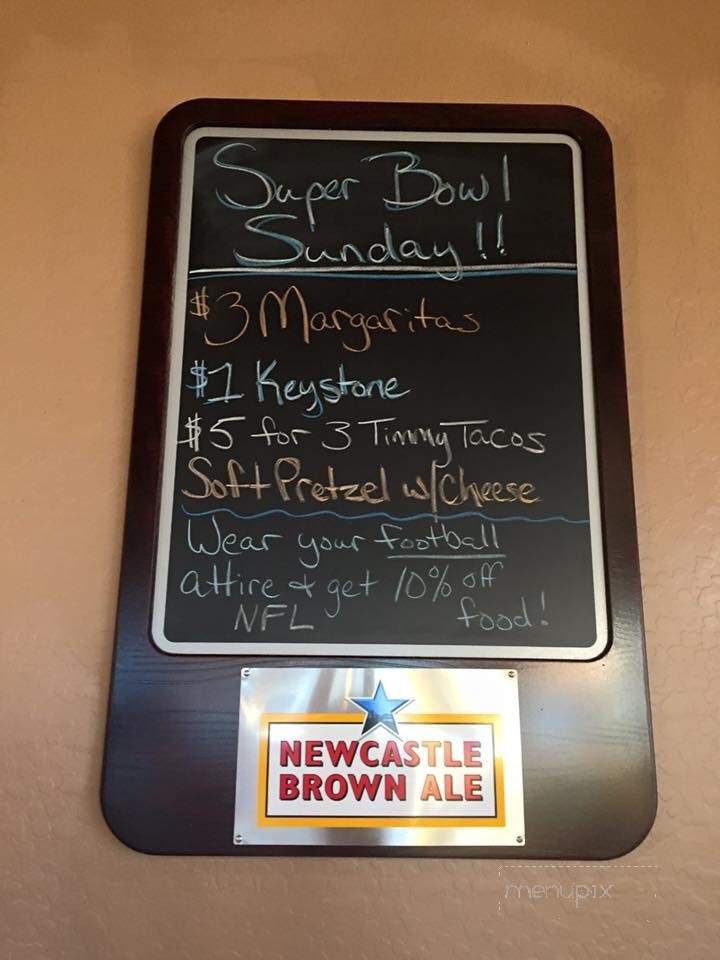 Super Bowl
Sunday!!
$3 Margaritas
$1 Keystone
$5 for 3 Timmy Tacos
Soft Pretzel w/Cheese
Wear your football
attire & get 10% off
NFL food!
NEWCASTLE
BROWN ALE
menupix